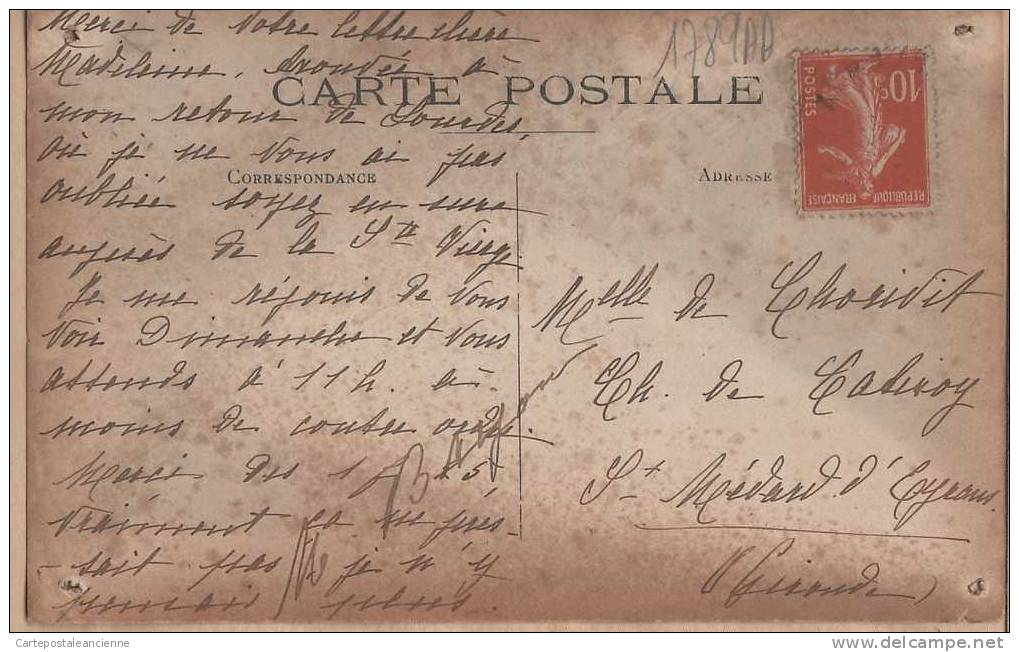 Merci de votre lettre chère
Madeleine, trouvée à
CARTE POSTALE
mon retour de Lourdes,
où je ne vous ai pas
oubliée soyez en sure
auprès de la Ste Vierge.
Je me réjouis de vous
voir Dimanche et vous
attends à 11h. à
moins de contre ordre.
Merci des 1f 5
vraiment ça ne pres-
-sait pas je n'y
pensais plus.
CORRESPONDANCE
ADRESSE
1789AA
10c
POSTES
REPUBLIQUE FRANÇAISE
Melle de
Ch. de
St Médard d'Eyrans
(Gironde)
Cartepostaleancienne
www.delcampe.net